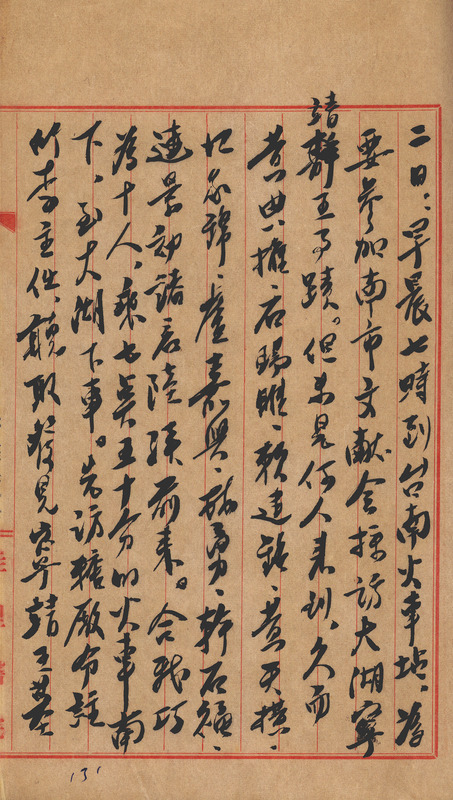 二日:早晨七時到台南火車站、為
要參加南市文獻會採訪大湖寧
靖王事蹟。但未見何人来到、久而
黄典權、石暘睢、賴建銘、黄天横、
江家錦、盧嘉興、林勇、韓石爐、
連景初諸君陸續前来。合我巧
為十人、乘七點五十分的火車南
下、到大湖下車。先訪糖廠分駐
所李主任、聽取發見寧靖王墓
131